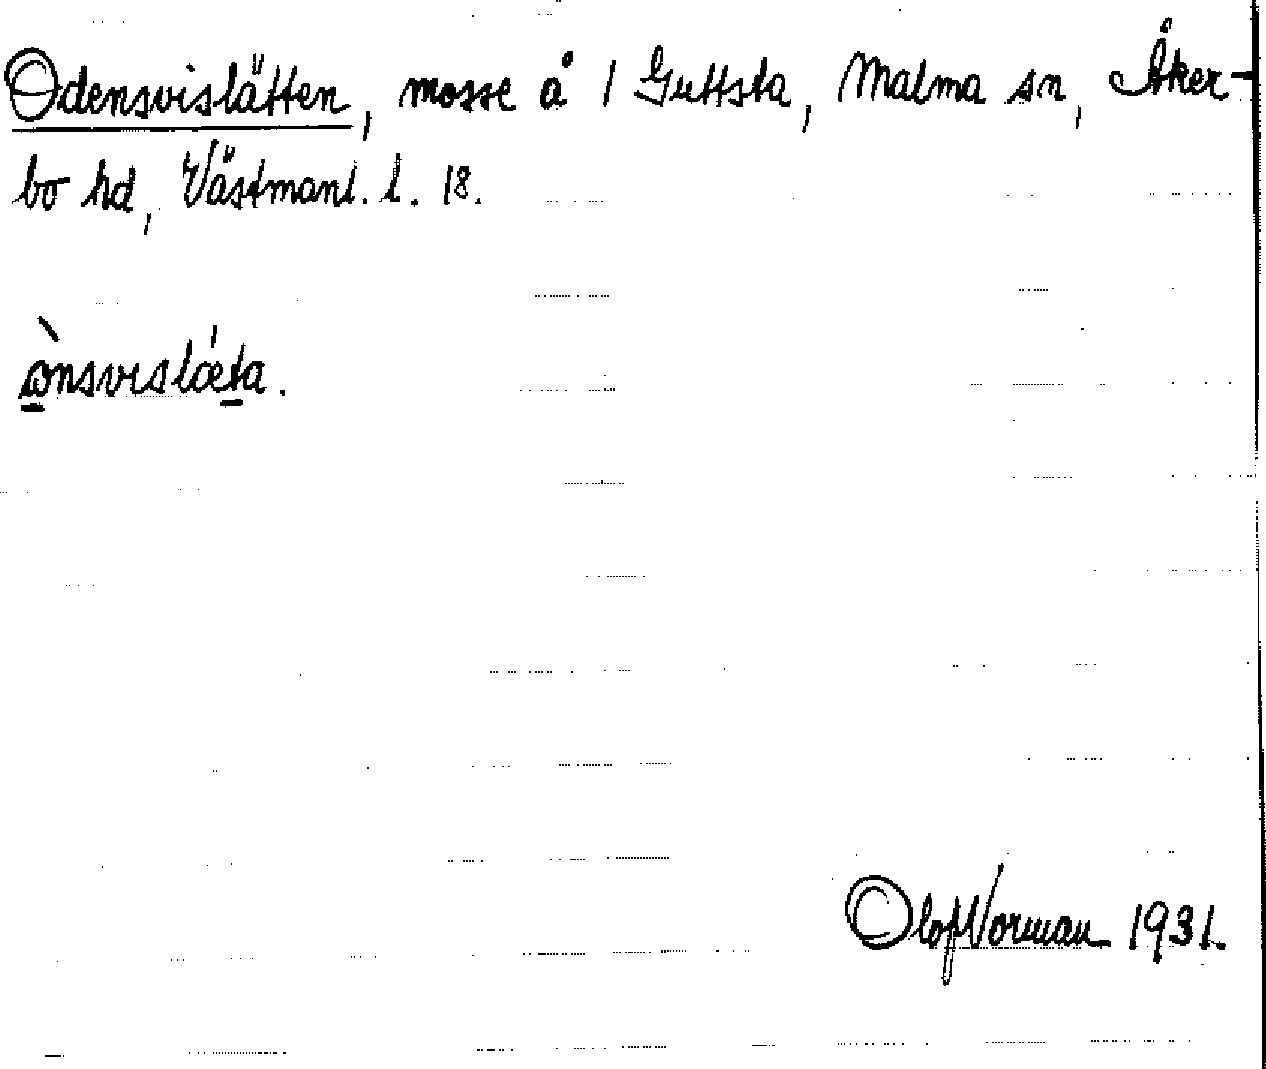 Odensvislätten, mosse å 1 Guttsta, Malma sn, Åker-
bo hd, Västmanl. l. 18.
ònsvislǽta.
Olof Norman 1931.